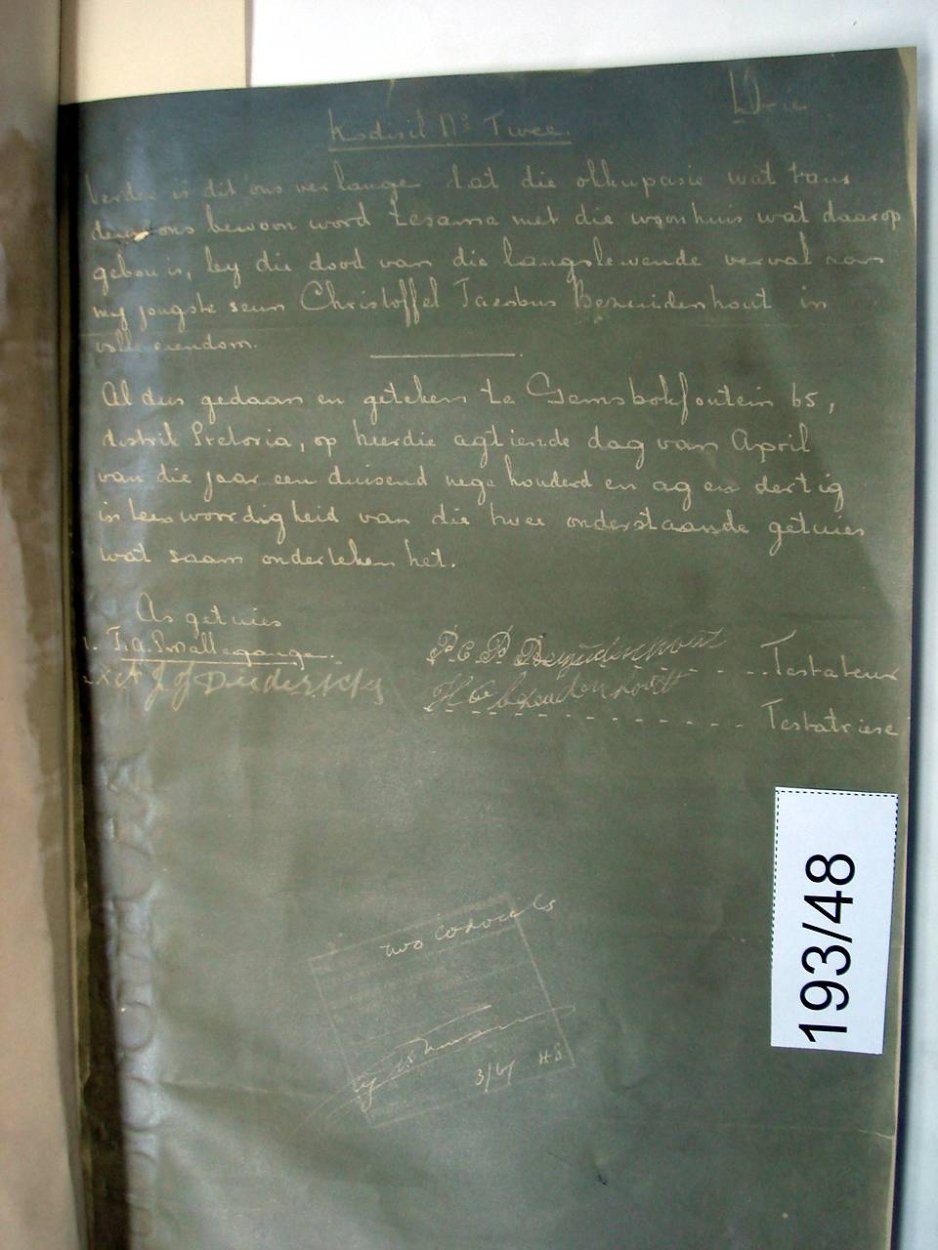 Drie
Kodisil No Twee.
Verder is dit ons verlange dat die okkupasie wat tans
deur ons bewoon word tesame met die woonhuis wat daarop
gebou is, by die dood van die langslewende verval aan
my jongste seun Christoffel Jacobus Bezuidenhout in
volle eiendom.
Al dus gedaan en geteken te Gemsbokfontein 65,
distrik Pretoria, op hierdie agtiende dag van April
van die jaar een duisend nege honderd en ag en dertig
in teenwoordigheid van die twee onderstaande getuies
wat saam onderteken het.
As getuies
1. J. A. Smallegange.
P C P Bezuidenhout Testateur
2. J J Diedericks
H C Bezuidenhout Testatriese
two codocils
3/48 HS
193/48